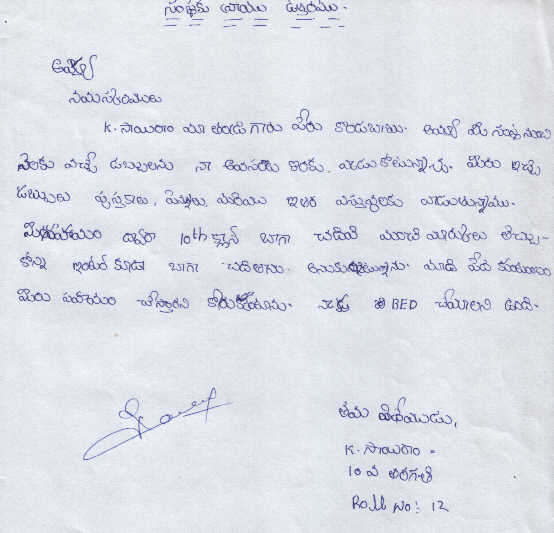 సంస్థకు వ్రాయు ఉత్తరము.
అయ్యా
నమస్కారములు
K. సాయిరాం మా తండ్రి గారు పేరు కొండబాబు. అయ్యా మీ సంస్థ నుంచి
నాకు వచ్చే డబ్బులను నా అవసరాల కొరకు. వాడుకోటున్నాను. మీరు ఇచ్చే
డబ్బులు పుస్తకాలు, పెన్నులు, మరియు ఇతర వస్తువులకు వాడుతున్నాము.
మీ సహాయం ద్వారా 10th క్లాస్ బాగా చదివి మంచి మార్కులు తెచ్చు-
కొన్ని ఇంటర్ కూడా బాగా చదవాలని. అనుకుంటున్నాను. మాది పేద కుటుంబం
మీరు సహాయం చేస్తారని కోరుకుంటూను. నాకు BED చేయాలని ఉంది.
తమ విధేయుడు,
K. సాయిరాం.
10 వ తరగతి
Roll No: 12